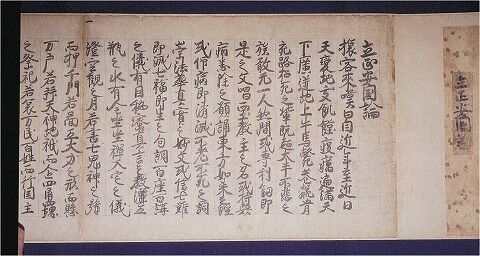 立正安国論
立正安國論
旅客来嘆曰自近年至近日
天変地夭飢饉疫癘遍満天
下廣迸地上牛馬斃巷骸骨
充路招死之輩既超大半不悲之
族敢无一人然間或専利釼即
是之文唱西土教主之名或恃衆
病悉除之願誦東方如来之經
或仰病即消滅不老不死之詞
崇法華真實之妙文或信七難
即滅七福即生之句調百座百講
之儀有因秘密真言之教灑五
瓶之水有全坐禅入定之儀
澄空觀之月若書七鬼神之号
而押千門若圖五大力之形而懸
万戸若拝天神地祇而企四角四堺
之祭祀若哀万民百姓而行国主